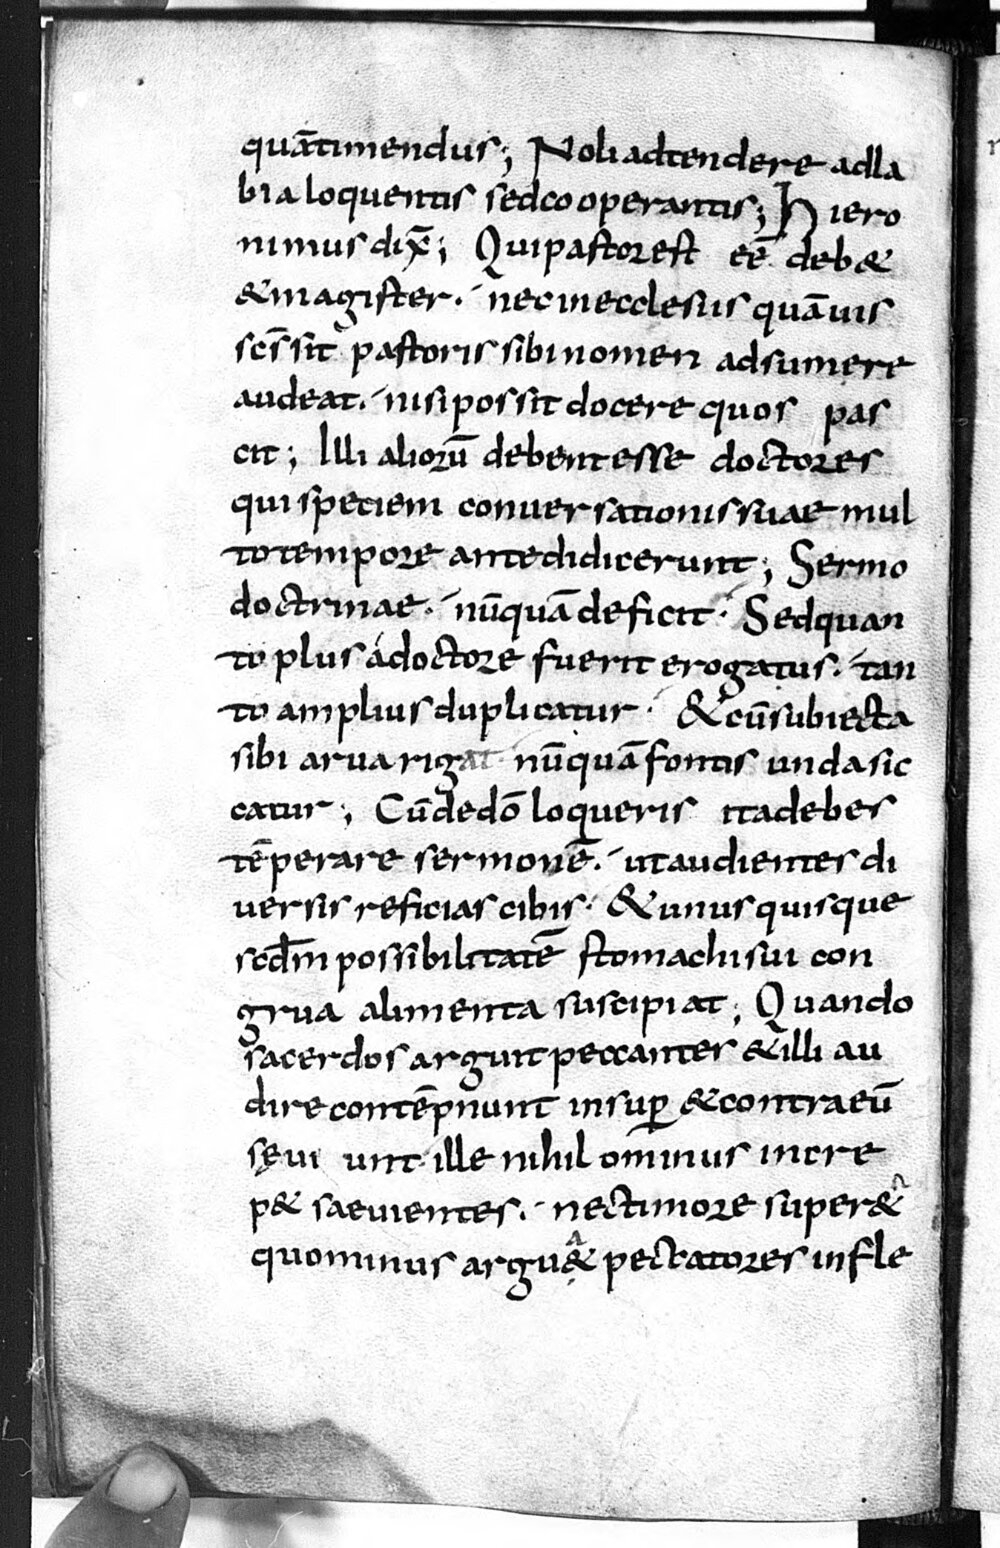 quātimendus; Noli adtendere adla
bia loquentis sedco operantis; Hiero
nimus dix̄; Qui pastor est eē deb&
& magister. nec in ecclesiis quāuis
scs̄ sit pastoris sibi nomen adsumere
audeat. nisi possit docere quos pas
cit; Illi aliorū debent esse doctores
qui speciem conuersationis suae mul
to tempore ante didicerunt; Sermo
doctrinae. nūquā deficit. Sed quan
to plus á doctore fuerit erogatus. tan
to amplius duplicatur. & cū subiecta
sibi arua rigat nūquā fontis unda sic
catur; Cū dedō loqueris ita debes
tēperare sermonē. ut audientes di
uersis reficias cibis. & unus quisque
scdm̄ possibilitatē stomachi sui con
grua alimenta suscipiat; Quando
sacerdos arguit peccantes & illi au
dire contēpnunt insuꝑ & contra eū
sęui unt ille nihil ominus incre
p& saeuientes. nec timore super&
quominus argu& peccatores infle